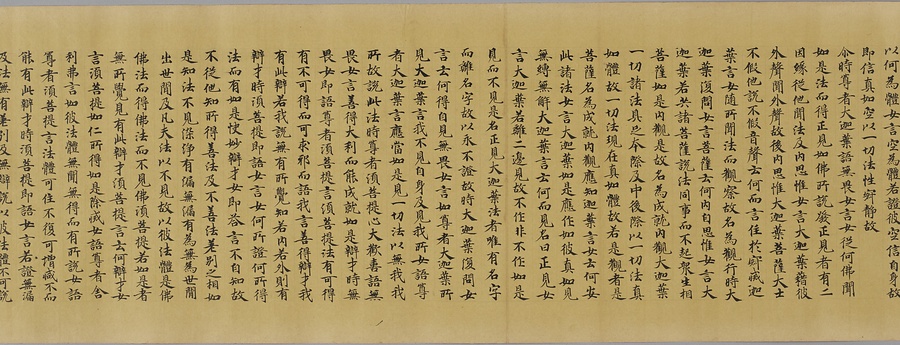 以何為體女言空為體若證彼空信自身故
即信真如空以一切法性寂靜故
尒時尊者大迦葉語無畏女言女從何佛聞
如是法而得正見如佛所說發正見者有二
因緣從他聞法及內思惟女言大迦葉藉彼
外聲聞外聲故後內思惟大迦葉菩薩大士
不假他說不假音聲云何而言住於寂滅迦
葉言女隨所聞法而觀察故名為觀行時大
迦葉復問女言菩薩云何內自思惟女言大
迦葉若共諸菩薩說法同事而不起眾生相
菩薩如是內觀是故名為成就內觀大迦葉
一切諸法真之今際及中後際以一切法真
如體故一切法現在真如體如是觀者是
菩薩名為成就內觀應知迦葉言女云何安
此諸法女言大迦葉如是應作如彼真如見
無縛無解大迦葉言云何而見名曰正見女
言大迦葉若離二邊見彼不作非不作如是
見而不見是名正見大迦葉法者唯有名字
而離名字故以永不證故時大迦葉復問女
言云何得自見無畏女言如尊者大迦葉所
見大迦葉言我不見自身及見我所女語尊
者大迦葉言應當如是見一切法以無我
所故說此法時尊者須菩提心大歡喜語無
畏女言善得大利而能成就如是辯才時無
畏女即語尊者須菩提言須菩提有可得
有不可得而可求邪而語我言善得辯才我
有此辯才若我說無有所覺知若內若外則有
辯才時須菩提即語女言女何所證何所得
法而有如是快妙辯才女即答言不自知故
不從他知所得善法及不善法差別之相如
是知法不見染淨有漏無漏有為無為世間
出世間及凡夫法以不見故以彼法體是佛
佛法而得佛法而不見佛須菩提若如是者
無所覺見有此辯才須菩提言云何辯才女
言須菩提如仁所得如是除滅女語尊者舍
利弗言如彼法體無聞無得而有所說女語
尊者須菩提言法體可住不復可增減不而
能有此辯才時須菩提即語女言若證無漏
及法無有差別及無辯說以彼法體不可說